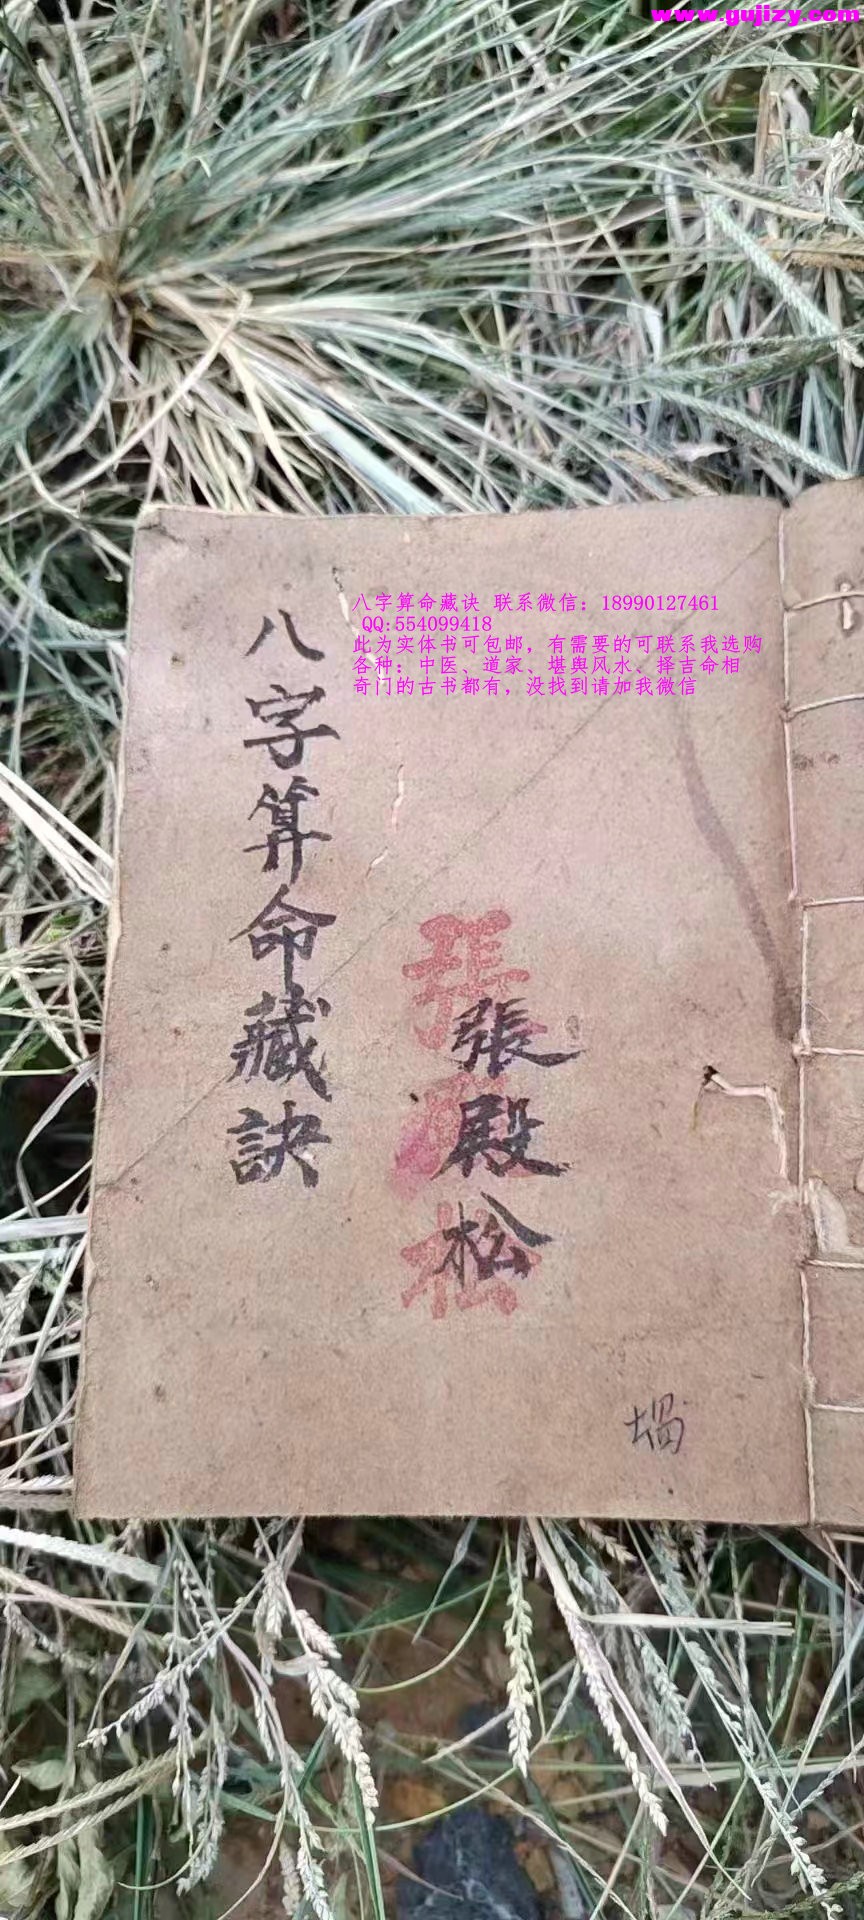 www.gujizy.com
八字算命藏诀 联系微信：18990127461
QQ:554099418
此为实体书可包邮，有需要的可联系我选购
各种：中医、道家、堪舆风水、择吉命相
奇门的古书都有，没找到请加我微信
八字算命藏訣
張殿松
張殿松